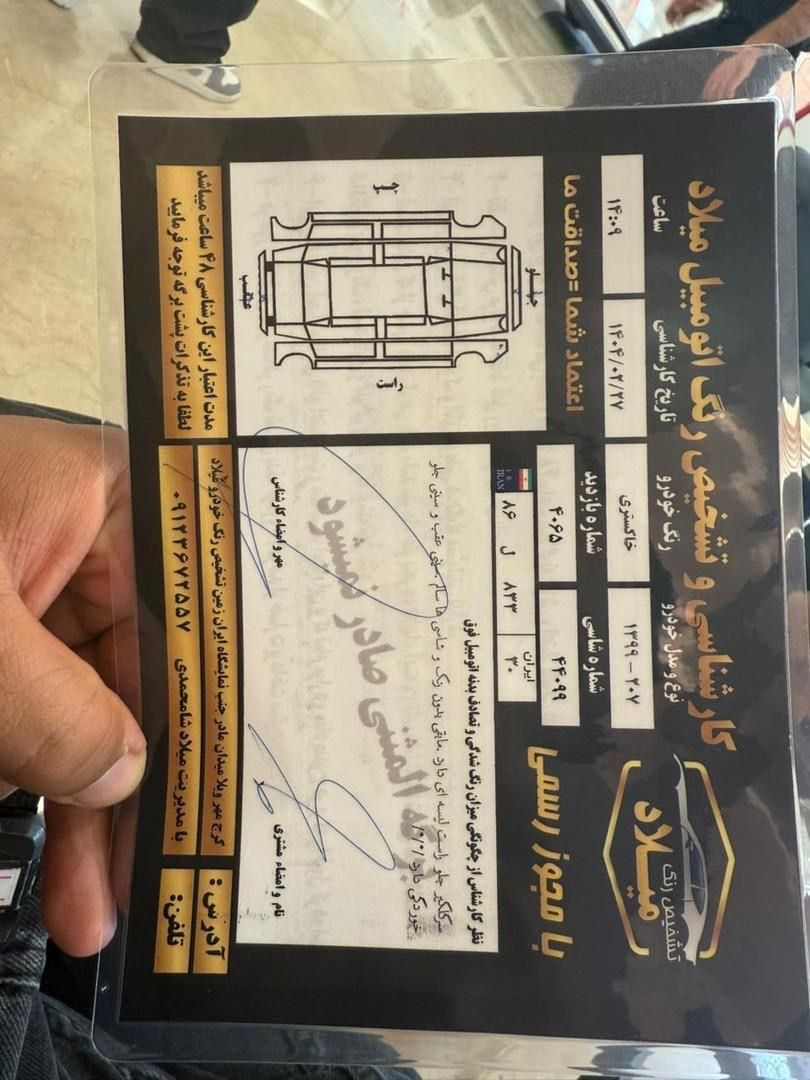 کارشناسی و تشخیص رنگ اتومبیل میلاد
تشخیص رنگ
میلاد
با مجوز رسمی
نوع و مدل خودرو
۱۳۹۹ - ۲۰۷
رنگ خودرو
خاکستری
تاریخ کارشناسی
۱۴۰۴/۰۲/۲۷
ساعت
۱۴:۰۹
شماره شاسی
۴۴۰۹۹
شماره بازدید
۴۰۶۵
I.R.
IRAN
۸۶ ل ۸۳۳
ایران
۳۰
اعتماد شما=صداقت ما
جلو
چپ
راست
عقب
نظر کارشناس از چگونگی میزان رنگ شدگی و تصادف بدنه اتومبیل فوق
سرگلگیر جلو راست لیسه ای دارد .مابقی بدون رنگ و شاسی ها سالم .سینی عقب و سینی جلو
خوردگی دارد
برگه المثنی صادر نمیشود
نام و امضاء مشتری
مهر و امضاء کارشناس
مدت اعتبار این کارشناسی ۴۸ ساعت میباشد
لطفا به تذکرات پشت برگه توجه فرمایید
آدرس :
کرج مهر ویلا میدان مادر جنب نمایشگاه ایران زمین تشخیص رنگ خودرو میلاد
تلفن:
با مدیریت میلاد شامحمدی ۰۹۱۲۳۶۷۲۵۵۷